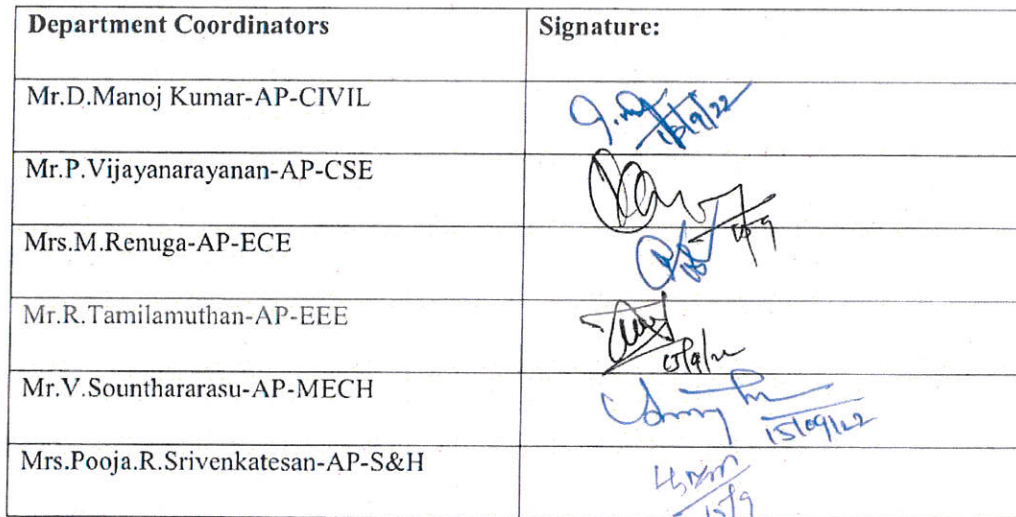 Department Coordinators Signature:
Mr.D.Manoj Kumar-AP-CIVIL
15/9/22
Mr.P.Vijayanarayanan-AP-CSE
15/9
Mrs.M.Renuga-AP-ECE
Mr.R.Tamilamuthan-AP-EEE
15/9/22
Mr.V.Sounthararasu-AP-MECH
15/09/22
Mrs.Pooja.R.Srivenkatesan-AP-S&H
15/9